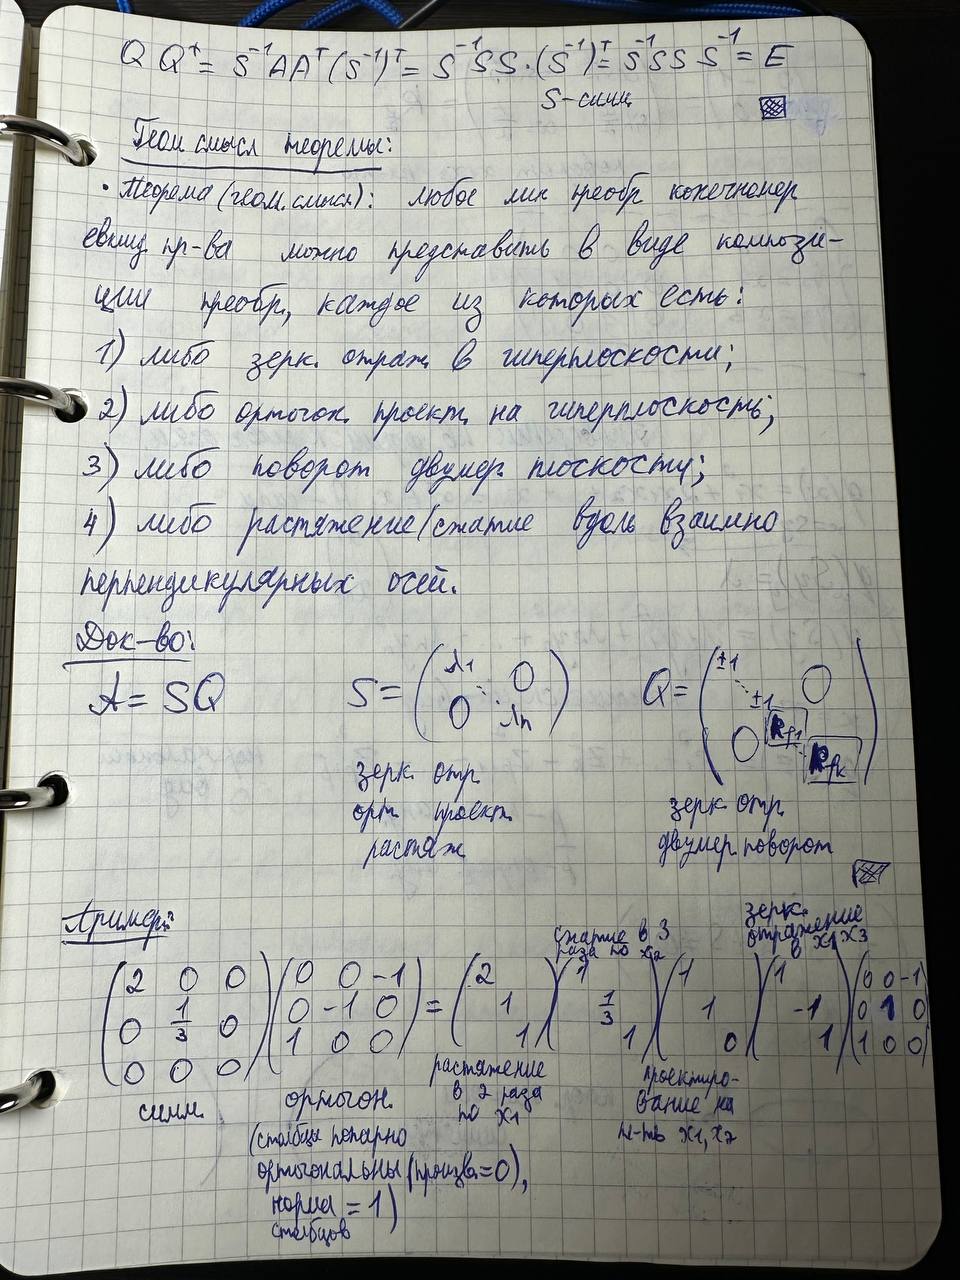 Q Qᵀ = S⁻¹AAᵀ(S⁻¹)ᵀ = S⁻¹SS·(S⁻¹)ᵀ = S⁻¹SS S⁻¹ = E
S-симм.
Геом смысл теоремы:
• Теорема (геом. смысл): любое лин преобр конечномер
евклид пр-ва можно представить в виде компози-
ции преобр, каждое из которых есть:
1) либо зерк. отраж. в гиперплоскости;
2) либо ортогон. проект. на гиперплоскость;
3) либо поворот двумер. плоскости;
4) либо растяжение/сжатие вдоль взаимно
перпендикулярных осей.
Док-во:
A = SQ S = (λ1 0 0 λn) Q = (±1 ±1 0 0 Rφ1 Rφk)
зерк. отр. зерк. отр.
орт. проект. двумер. поворот
растяж
Пример:
(2 0 0) (0 0 -1) = (2) (1) (1) (1) (0 0 -1)
(0 1/3 0) (0 -1 0) (1) (1/3) (1) (-1) (0 1 0)
(0 0 0) (1 0 0) (1) (1) (0) (1) (1 0 0)
сжатие в 3
раза по x2
зерк.
отражение
в x1 x3
симм.
ортогон.
(столбцы попарно
ортогональны (произв=0),
норма = 1)
столбцов
растяжение
в 2 раза
по x1
проектиро-
вание на
пл-ть x1, x2